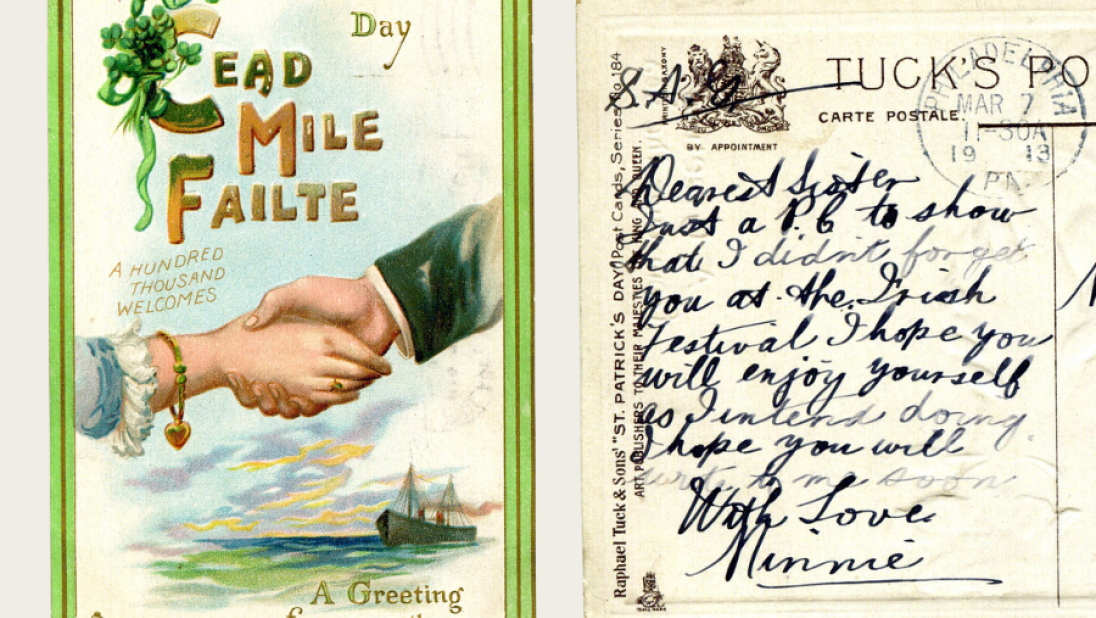 Day
CEAD
MILE
FAILTE
A HUNDRED
THOUSAND
WELCOMES
A Greeting
S.A.G
BY APPOINTMENT
TUCK'S PO
CARTE POSTALE.
PHILADELPHIA
MAR 7
11-30A
19 13
PA
Raphael Tuck & Sons' "ST. PATRICK'S DAY" Post Cards, Series No 184
ART PUBLISHERS TO THEIR MAJESTIES THE KING AND QUEEN.
Dearest Sister
Just a P.C to show
that I didn't forget
you at the Irish
Festival I hope you
will enjoy yourself
as I intend doing.
I hope you will
write to me soon
With Love.
Minnie
TRADE MARK